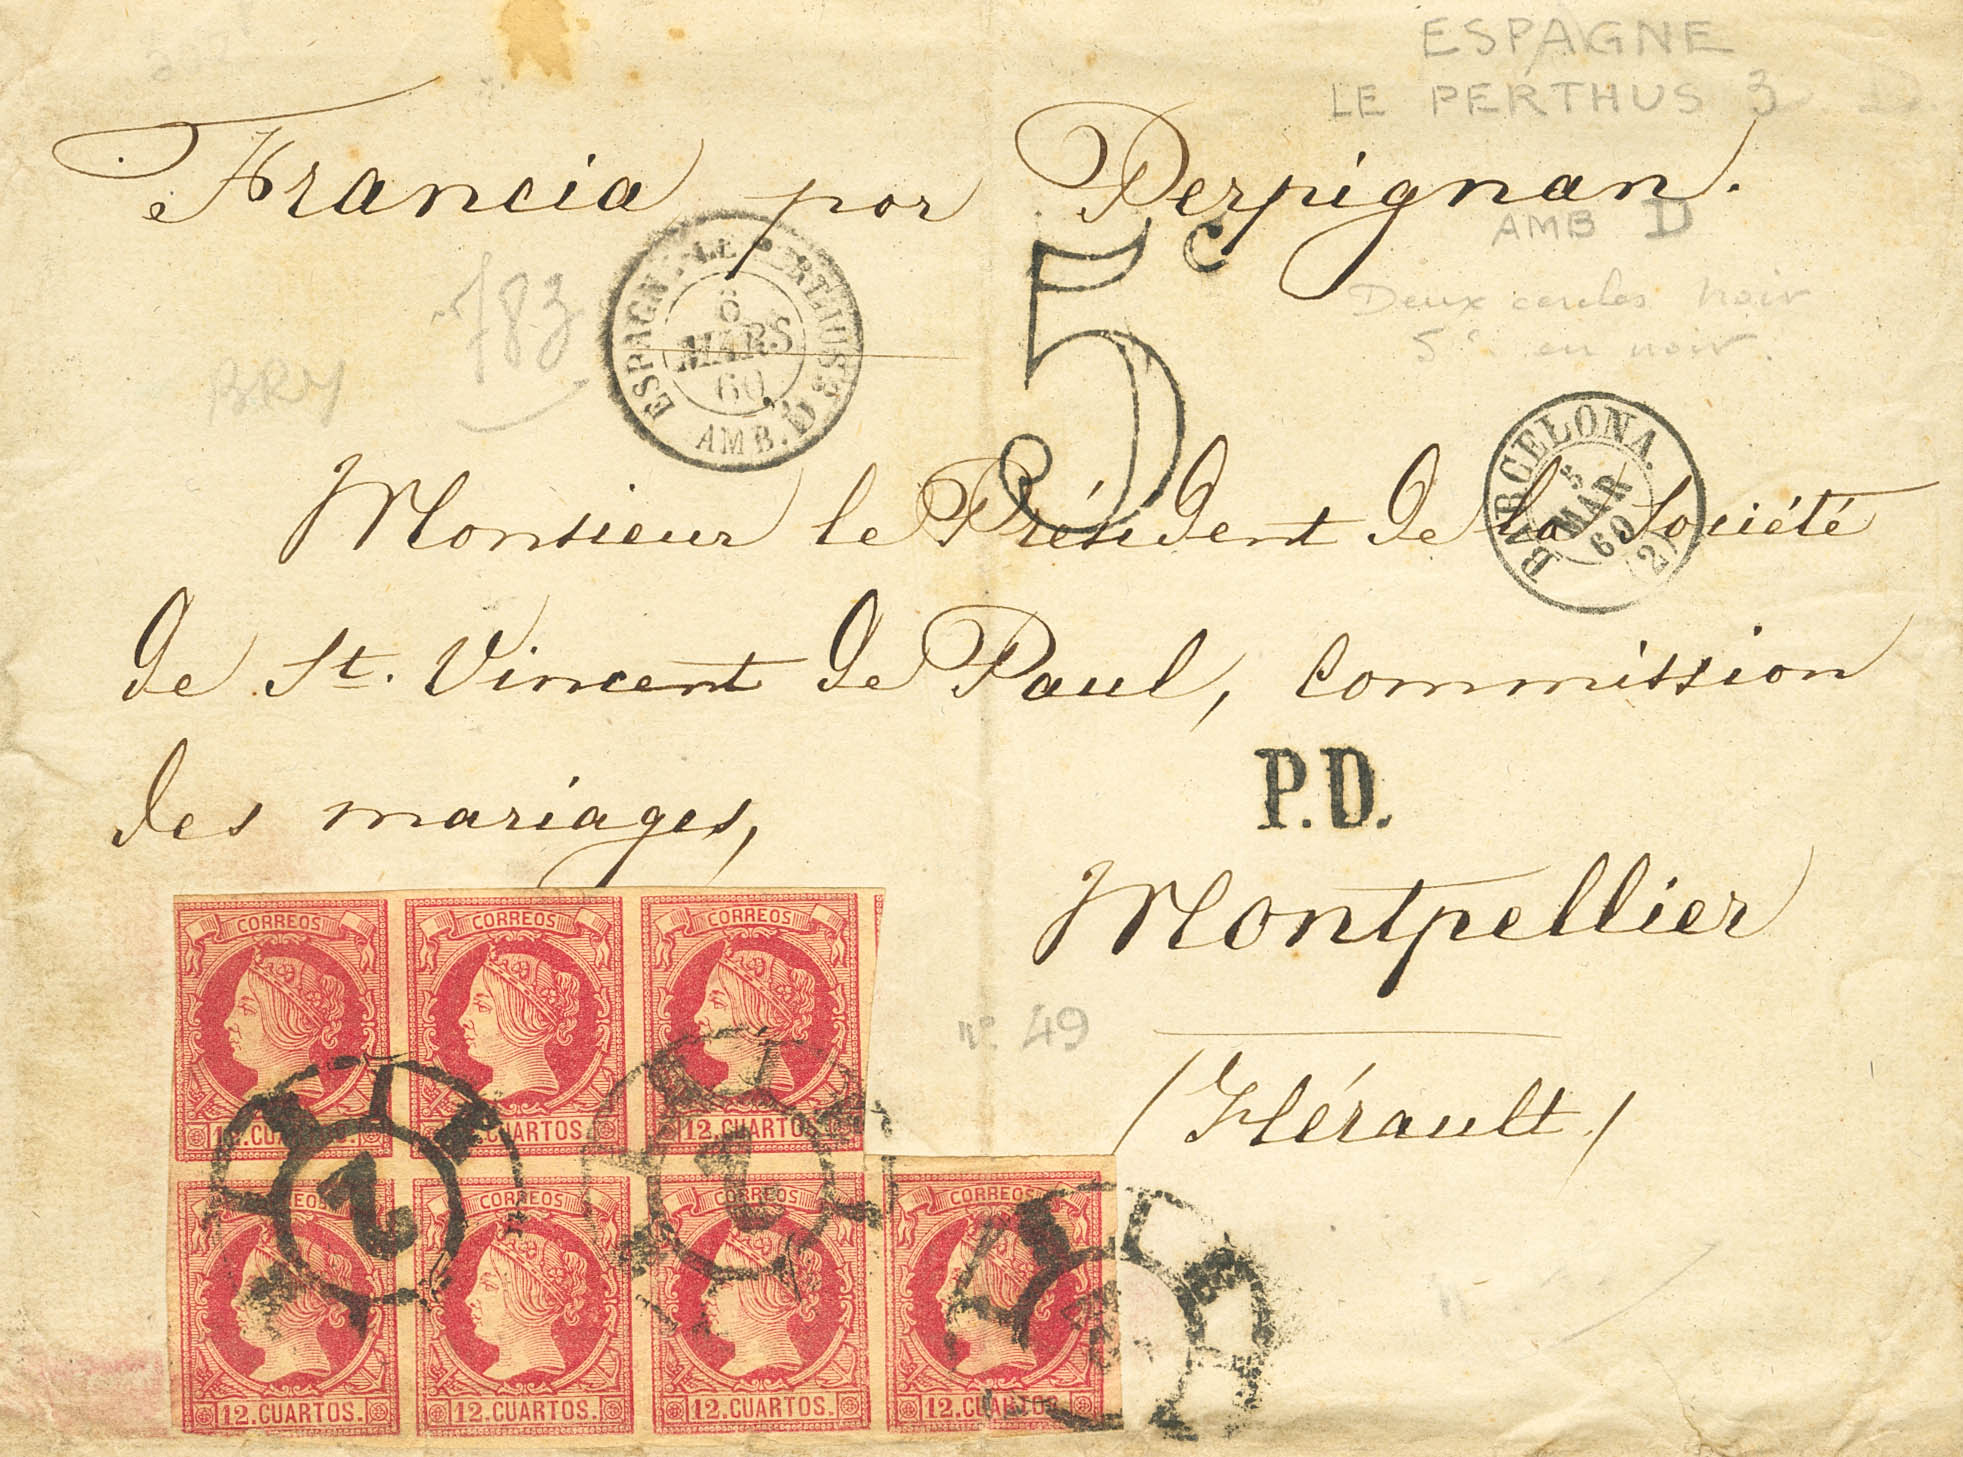 ESPAGNE
LE PERTHUS 3
Francia por Perpignan.
AMB D
ESPAGN. LE PERTHUS 3
6
MARS
60
AMB. D
5c
783
Deux cercles noir
5c en noir.
BRY
BARCELONA.
5
MAR
60
(2)
Monsieur le Président de la Société
de St. Vincent de Paul, Commission
des mariages,
P.D.
Montpellier
(Hérault)
n° 49
CORREOS CORREOS CORREOS
12.CUARTOS. 12.CUARTOS. 12.CUARTOS
2
CORREOS CORREOS CORREOS CORREOS
12.CUARTOS. 12.CUARTOS. 12.CUARTOS. 12.CUARTOS